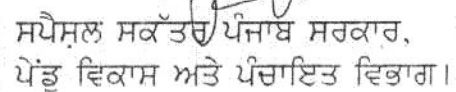 ਸਪੈਸ਼ਲ ਸਕੱਤਰ ਪੰਜਾਬ ਸਰਕਾਰ,
ਪੇਂਡੂ ਵਿਕਾਸ ਅਤੇ ਪੰਚਾਇਤ ਵਿਭਾਗ।